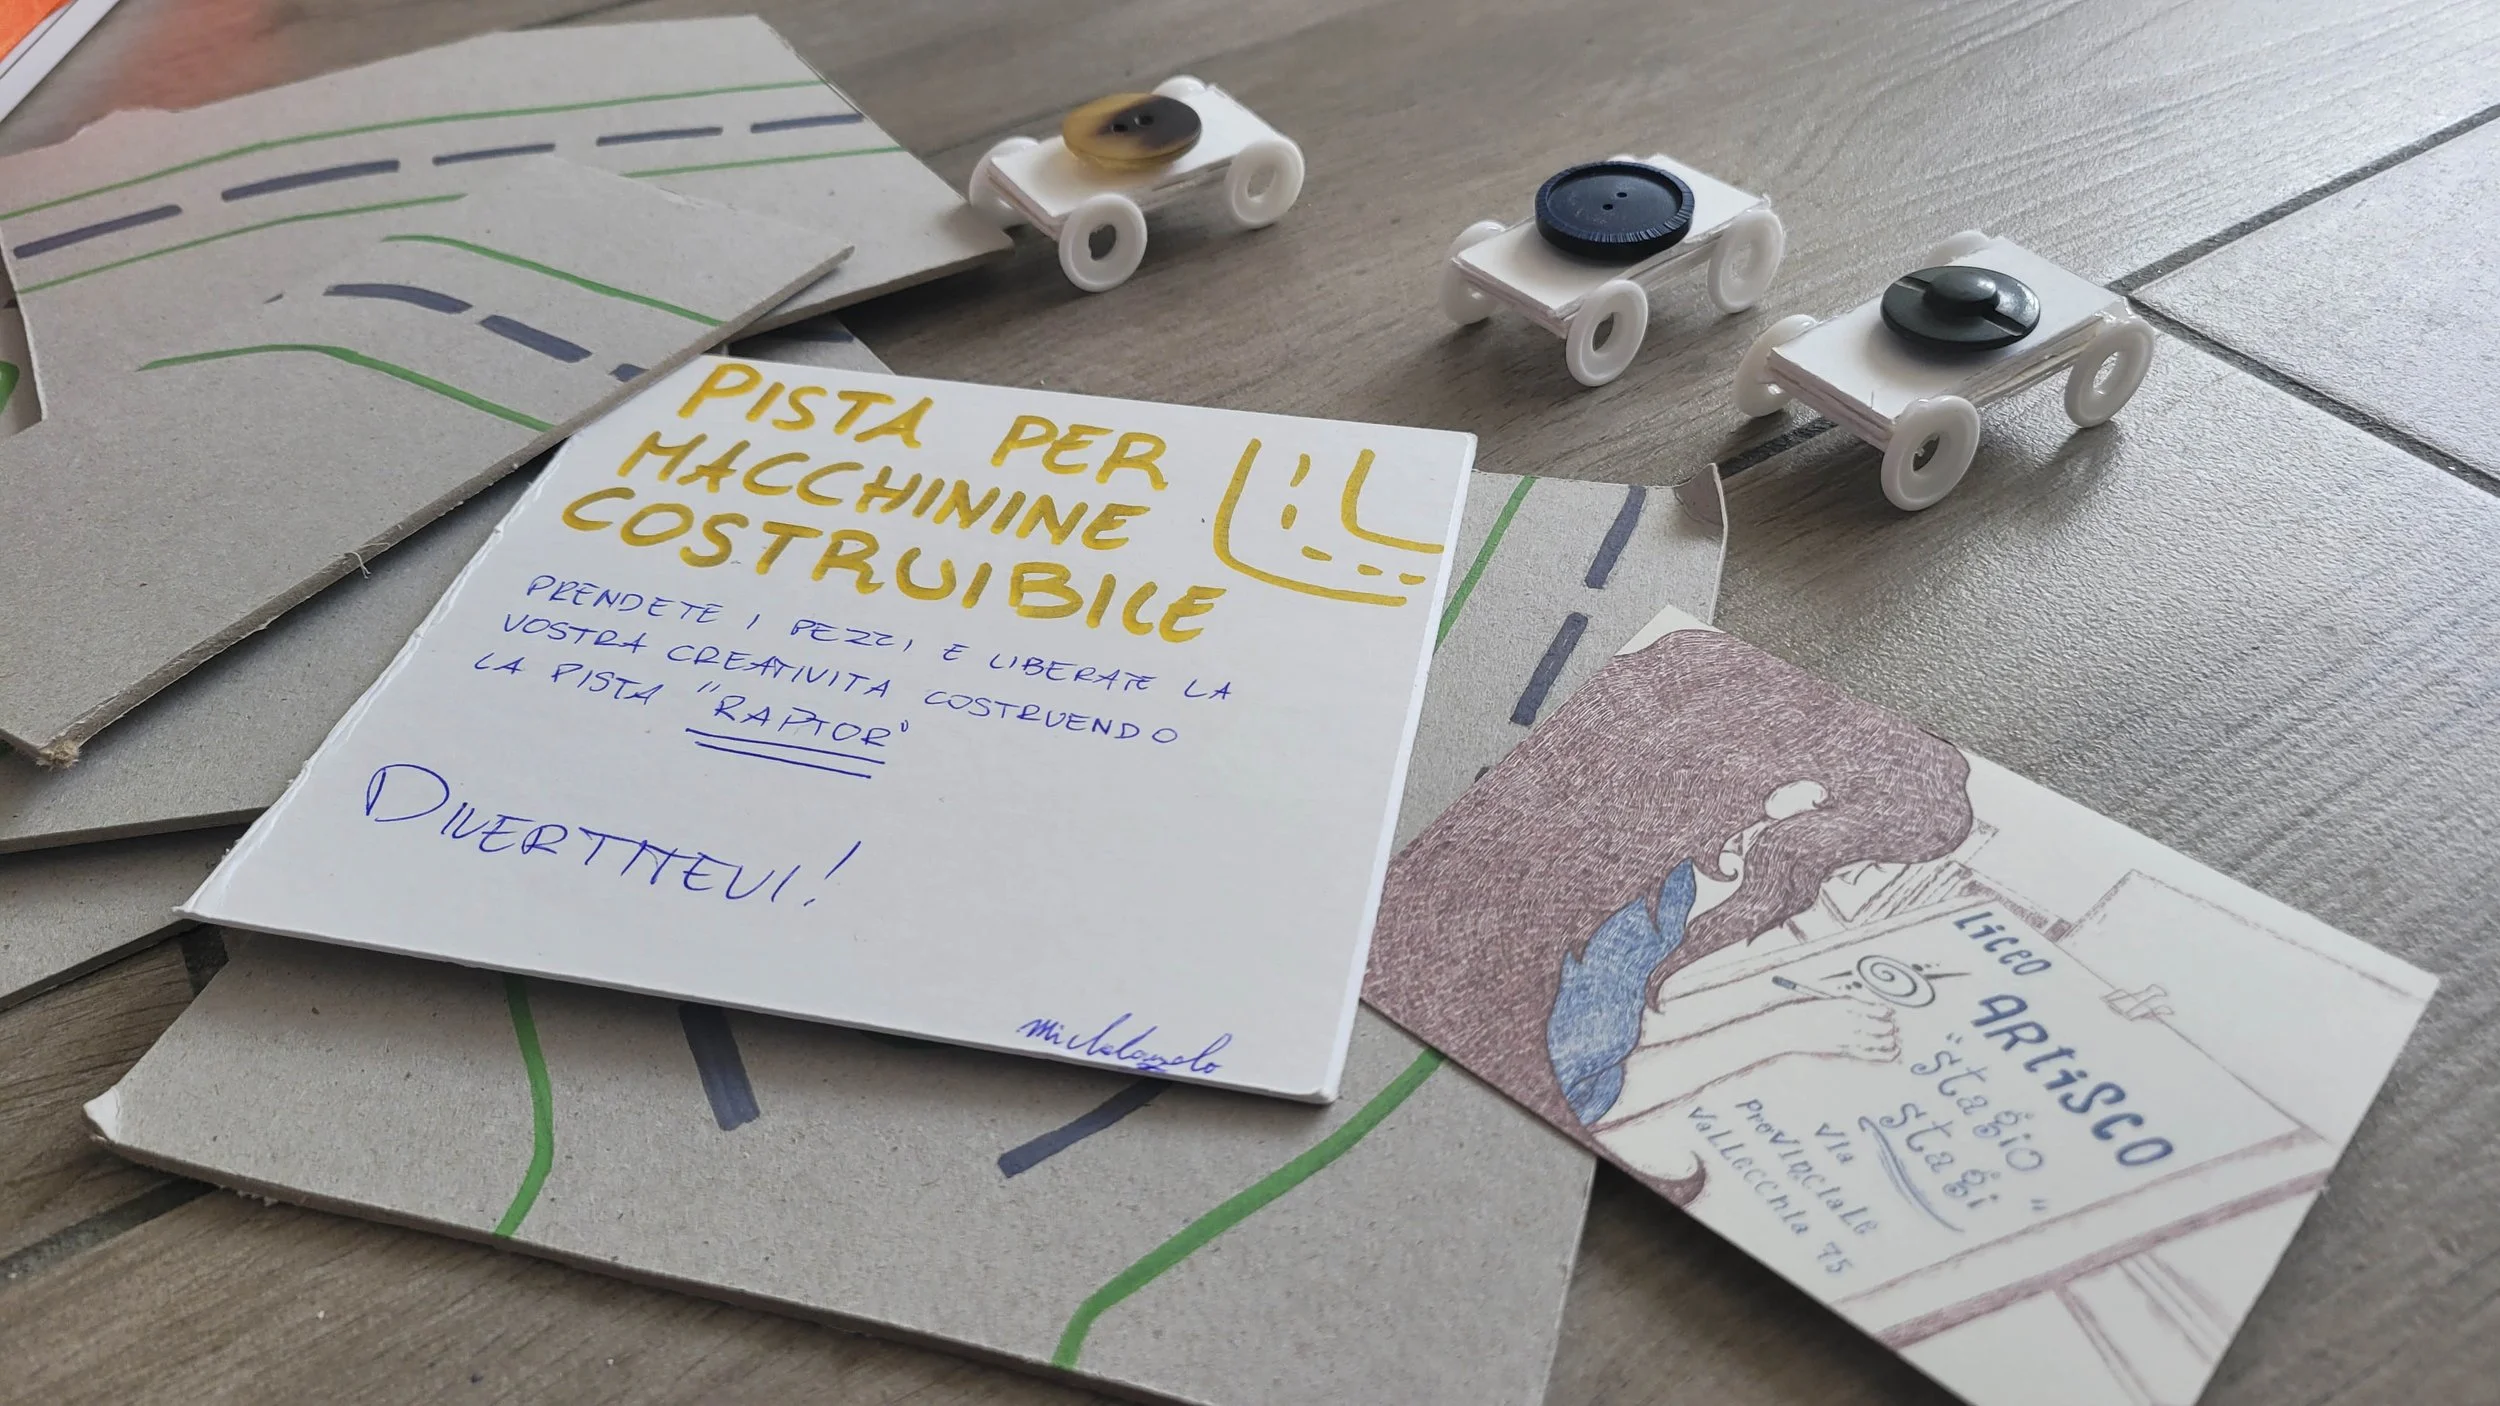 PISTA PER
MACCHININE
COSTRUIBILE
PRENDETE I PEZZI, E LIBERATE LA
VOSTRA CREATIVITA COSTRUENDO
LA PISTA "RAPTOR"
DIVERTITEVI!
Michelangelo
Liceo
ARtiSCO
"Stagio
Stagi"
Via
ProVINCIaLe
VaLLecchIa 75